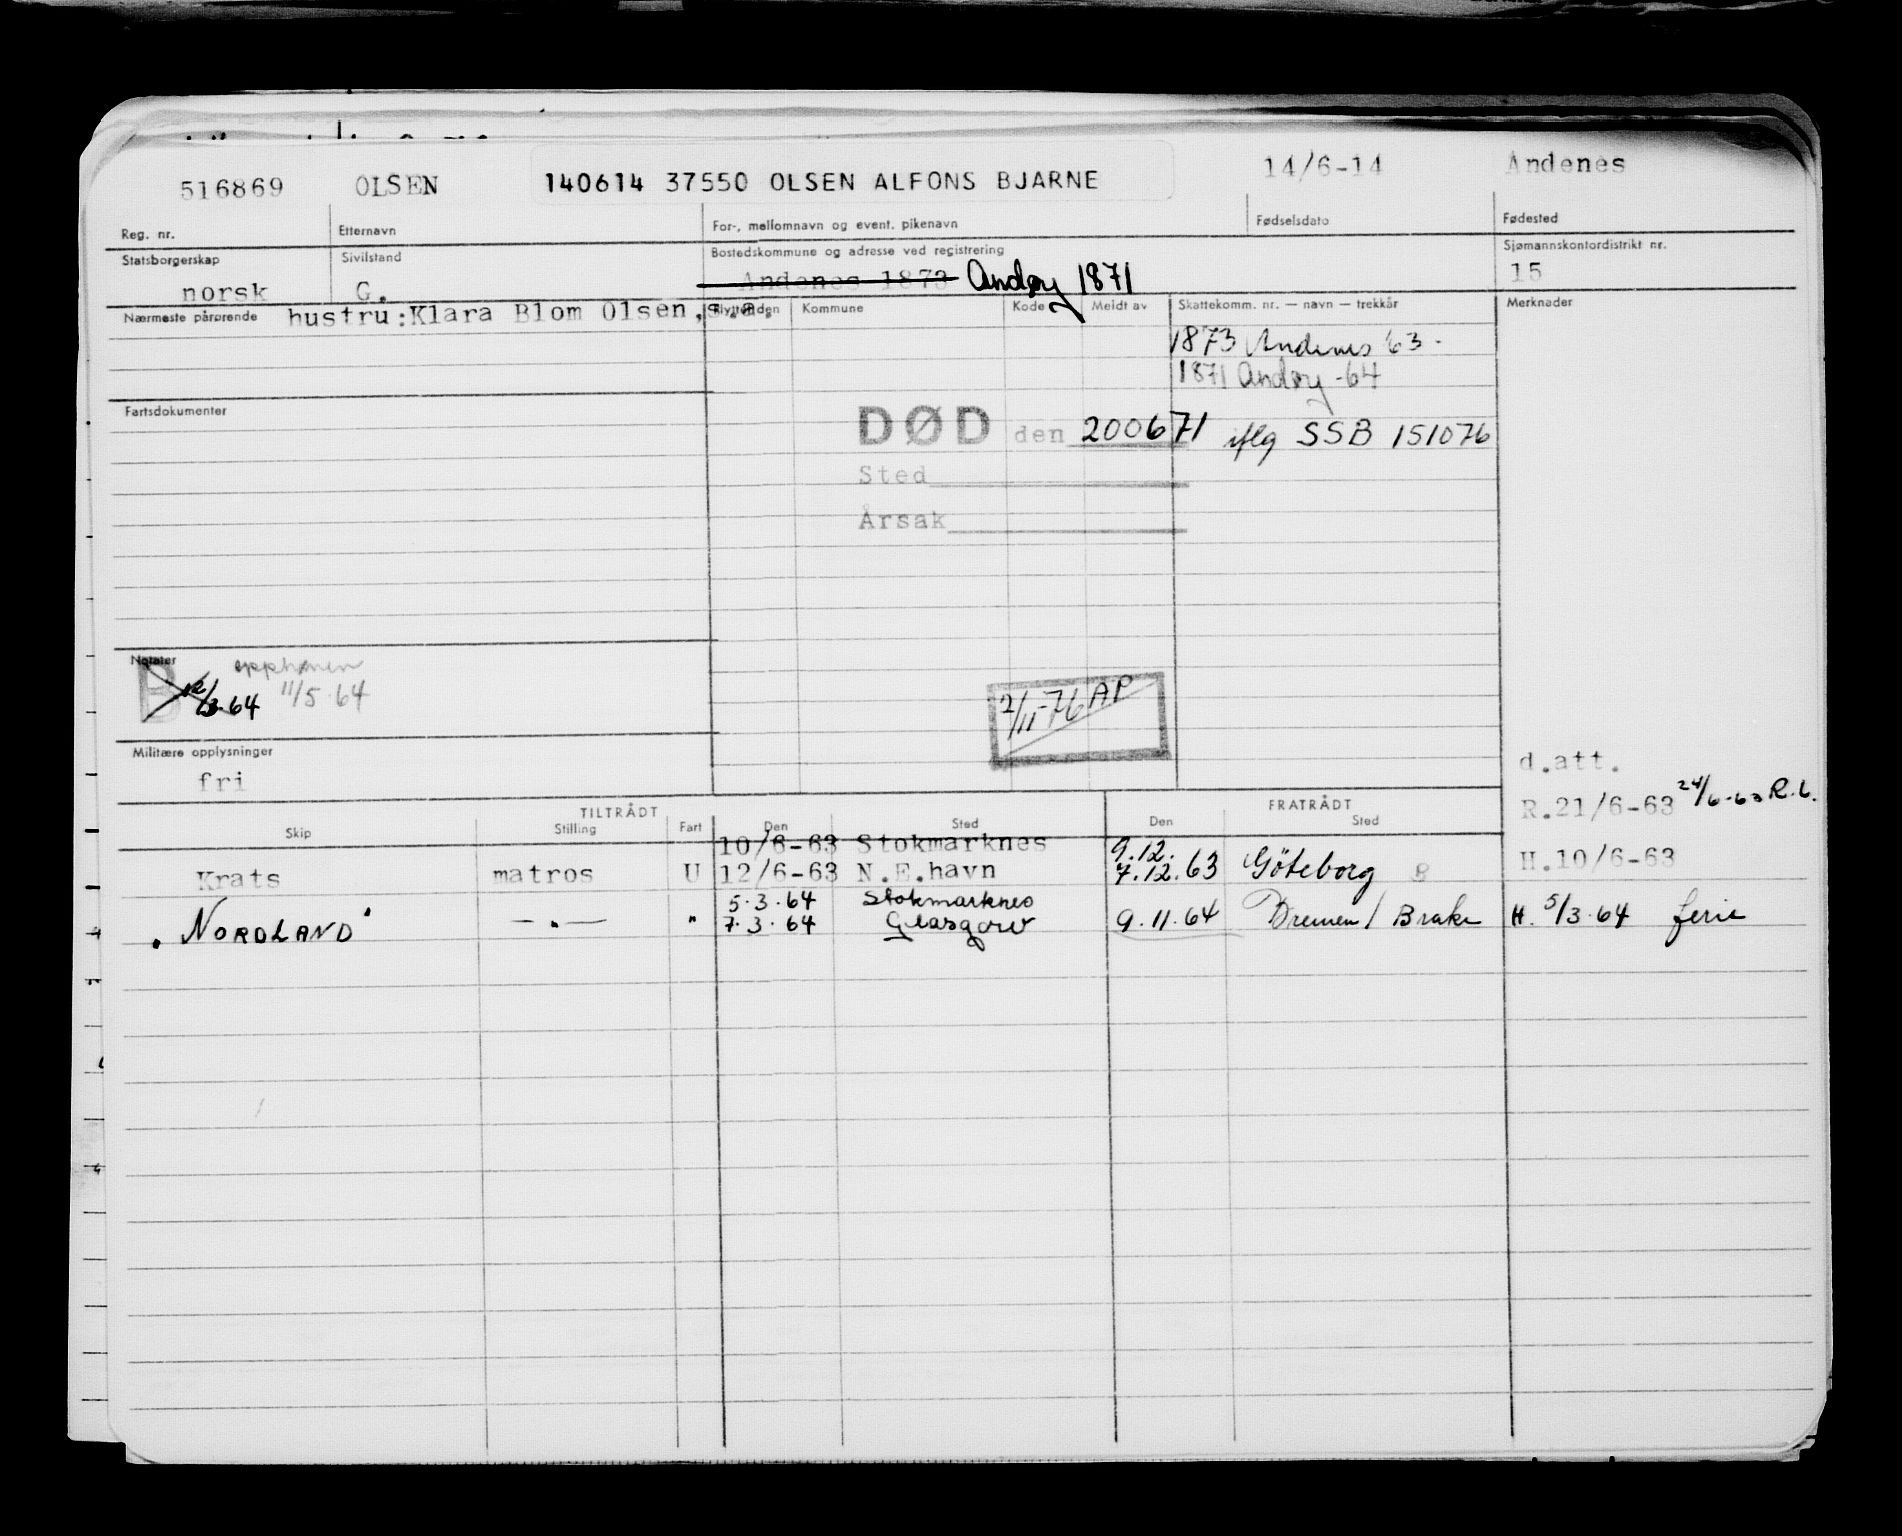 516869 OLSEN 140614 37550 OLSEN ALFONS BJARNE 14/6-14 Andenes
Reg. nr. Etternavn For-, mellomnavn og event. pikenavn Fødselsdato Fødested
Statsborgerskap Sivilstand Bostedskommune og adresse ved registrering Sjømannskontordistrikt nr.
norsk G. Andenes 1873 Andøy 1871 15
Nærmeste pårørende hustru:Klara Blom Olsen,s.a. Kommune Kode Meldt av Skattekomm. nr. — navn — trekkår Merknader
1873 Andenes 63.
1871 Andøy -64
Fartsdokumenter
DØD den 200671 iflg SSB 151076
Sted
Årsak
Notater
B 12/3.64 11/5.64
2/11-76 AP
Militære opplysninger
fri
d.att.
R.21/6-63 24/6-63 R.b.
TILTRÅDT FRATRÅDT
Skip Stilling Fart Den Sted Den Sted
10/6-63 Stokmarknes 9.12.
Krats matros U 12/6-63 N.E.havn 7.12.63 Göteborg B H.10/6-63
5.3.64 Stokmarknes
"NORDLAND" —.— " 7.3.64 Glasgow 9.11.64 Bremen/Brake H. 5/3.64 ferie